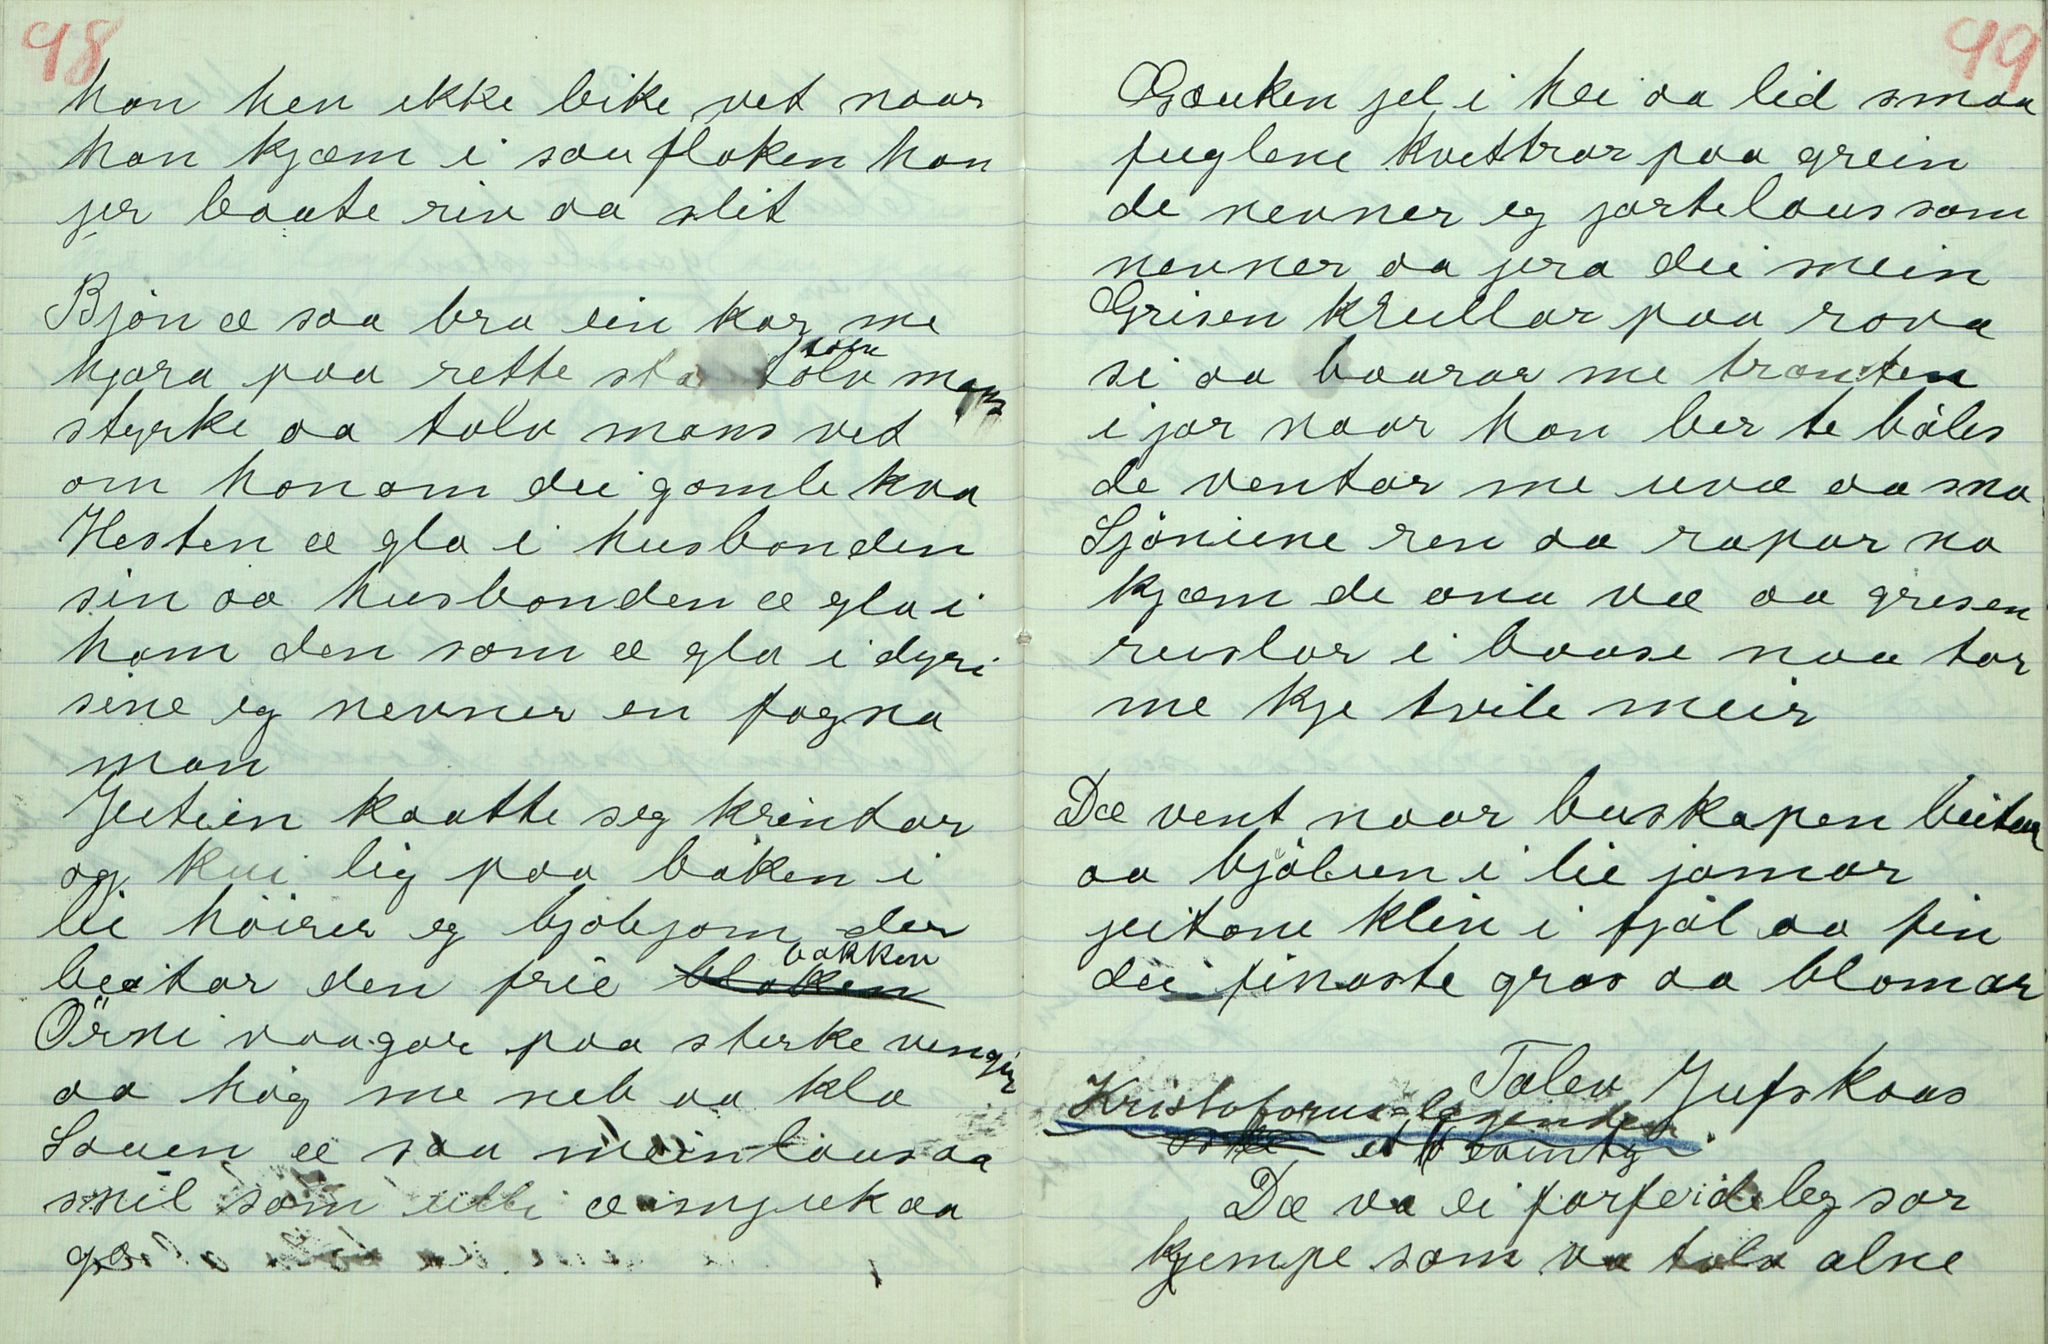 98
han hen ikke bike vet naar
han kjæm i sauflaken han
jer baate riv aa slit
Bjøn æ saa bra ein kar me
hjara paa rette sta som tolv mans
styrke aa tolv mans vet
om honom dei gamle kva
Hesten æ gla i husbonden
sin aa husbonden æ gla i
ham den som æ gla i dyri
sine eg nevner en fagna
man
Jeitein kaatte seg krintar
og kui lig paa båken i
lie höirer eg bjøbjom der
beitar den frie bakken
Örni vaagar paa sterke vengjir
aa høg me neb aa klo
Sauen æ saa meinlaus aa
snil som ulli æ mjuk aa
go
99
Gauken jel i hei aa lid smaa
fuglene kvettrar paa grein
de nevner eg jartelaus som
nevner aa jera dei mein
Grisen krullar paa rova
si aa baarar me tranten
i jor naar han ber te båles
de ventar me uvæ aa sno
Sjöniene ren aa rapar no
kjæm de ana væ aa gresen
ruslar i baase naa tar
me kje tvile meir
Dæ vent naar buskapen beitar
aa bjølun i lie jamar
jeitane klin i fjøl aa fin
dei finaste gras aa blomar
Talev Jufskaas
Kristoforus-legende
et eventy
Dæ va ei forfeideleg sor
kjempe som va tolv alne